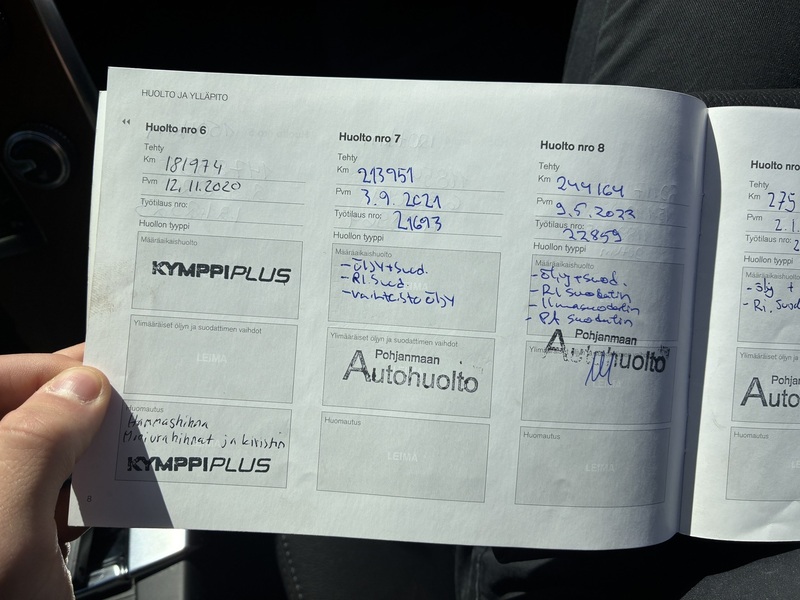 HUOLTO JA YLLÄPITO
Huolto nro 6
Tehty
Km 181974
Pvm 12.11.2020
Työtilaus nro:
Huollon tyyppi
Määräaikaishuolto
KYMPPIPLUS
Ylimääräiset öljyn ja suodattimen vaihdot
LEIMA
Huomautus
Hammashihna
Moniurahihnat ja kiristin
KYMPPIPLUS
8
Huolto nro 7
Tehty
Km 213951
Pvm 3.9.2021
Työtilaus nro: 21693
Huollon tyyppi
Määräaikaishuolto
-öljy+suod.
-RI suod.
-vaihteisto öljy
Ylimääräiset öljyn ja suodattimen vaihdot
Pohjanmaan
Autohuolto
Huomautus
LEIMA
Huolto nro 8
Tehty
Km 244164
Pvm 9.5.2022
Työtilaus nro:
22859
Huollon tyyppi
Määräaikaishuolto
-öljy+suod.
-RI suodatin
-ilmasuodatin
-PA suodatin
Pohjanmaan
Autohuolto
Huomautus
LEIMA
Huolto nro
Tehty
Km 275
Pvm 2.1.
Työtilaus nro: 2
Huollon tyyppi
Määräaikaishuolto
-öljy +
-RI. suod
Ylimääräiset
Pohjan
Auto
Huomautus